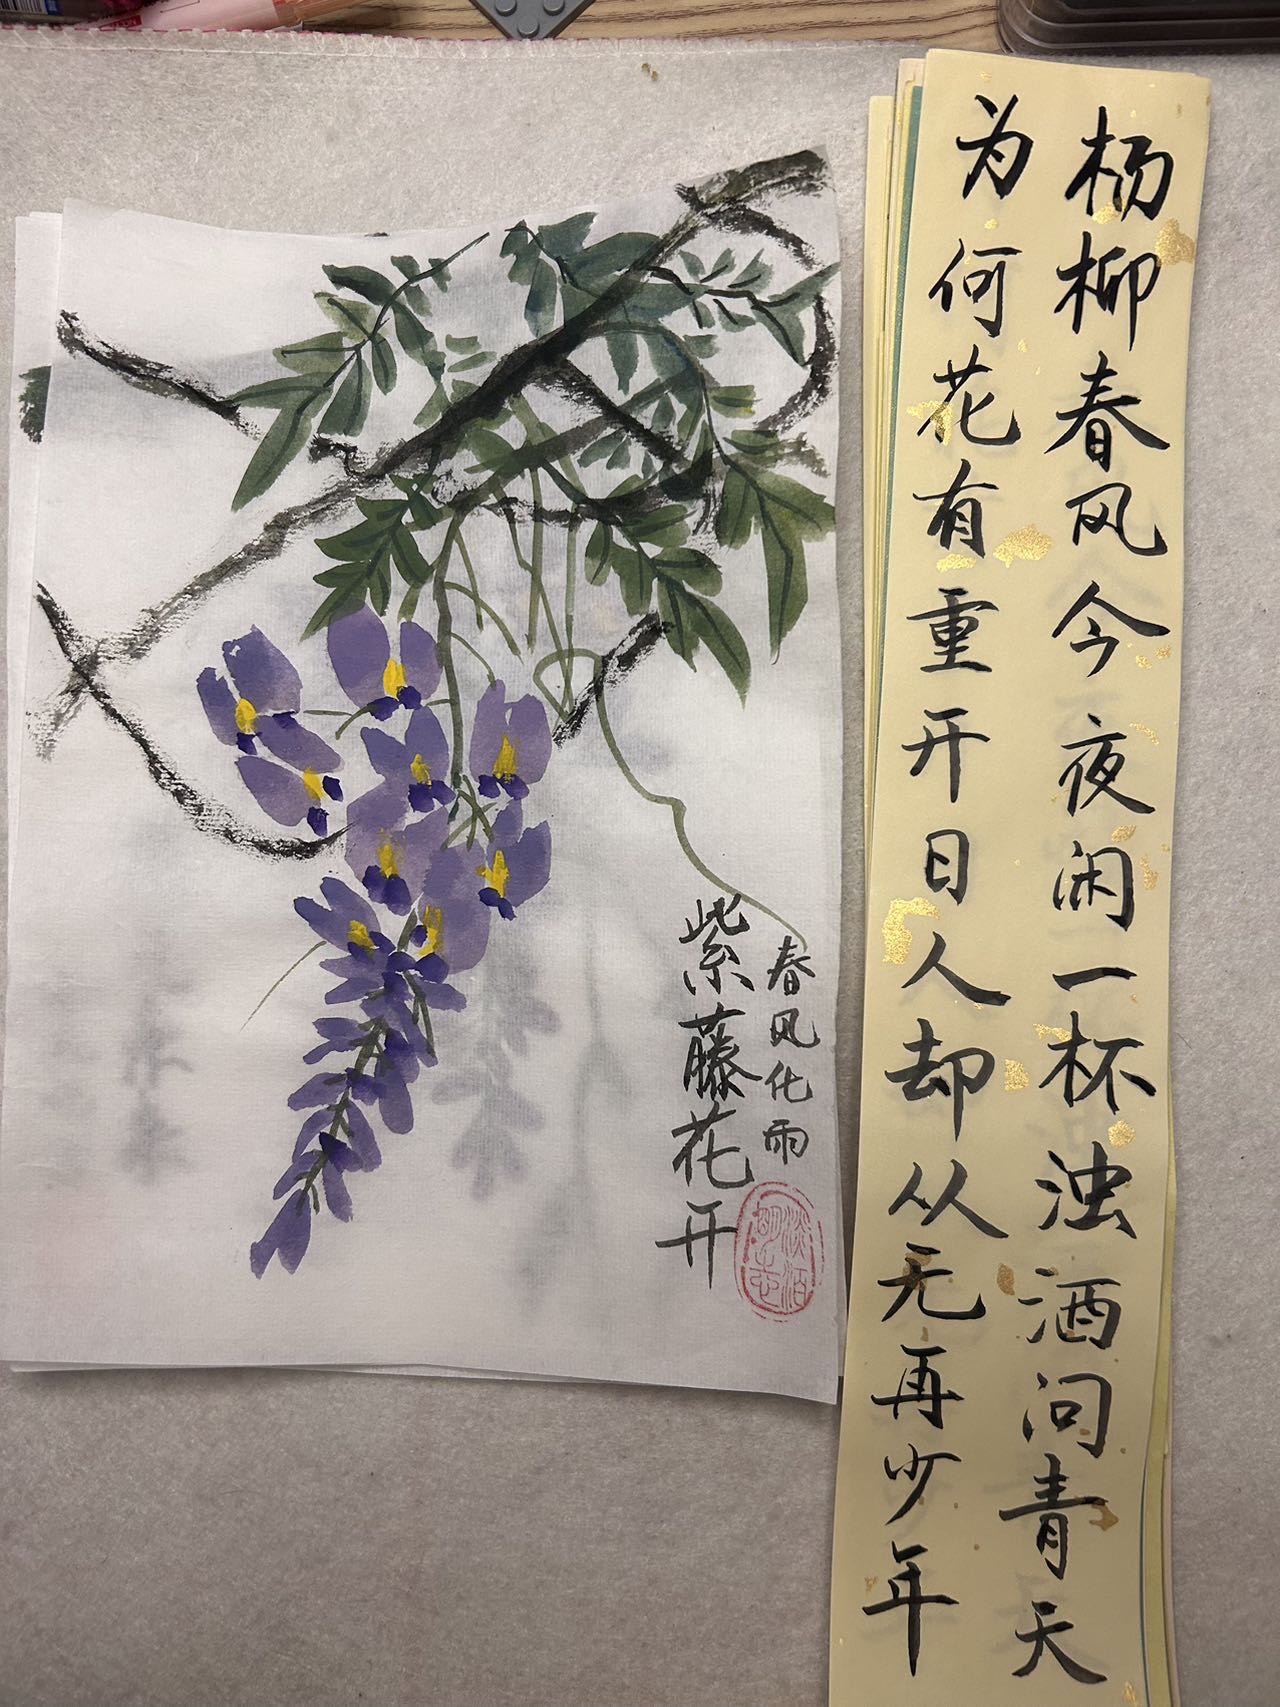 杨柳春风今夜闲一杯浊酒问青天
为何花有重开日人却从无再少年
春风化雨
紫藤花开